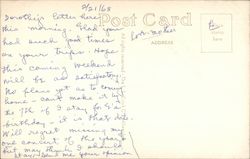 9/21/65
Dorothy's letter here
this morning. Glad you
had such good times
on your trips. Hope
this coming weekend
will be as satisfactory.
No plans yet as to coming
home - can't make it by
the 7th if I stay for G's
birthday - it is that date.
Will regret missing my
one concert of the year
but may think I should
stay. Send me your opinion
Love - Mother
Post Card
ADDRESS